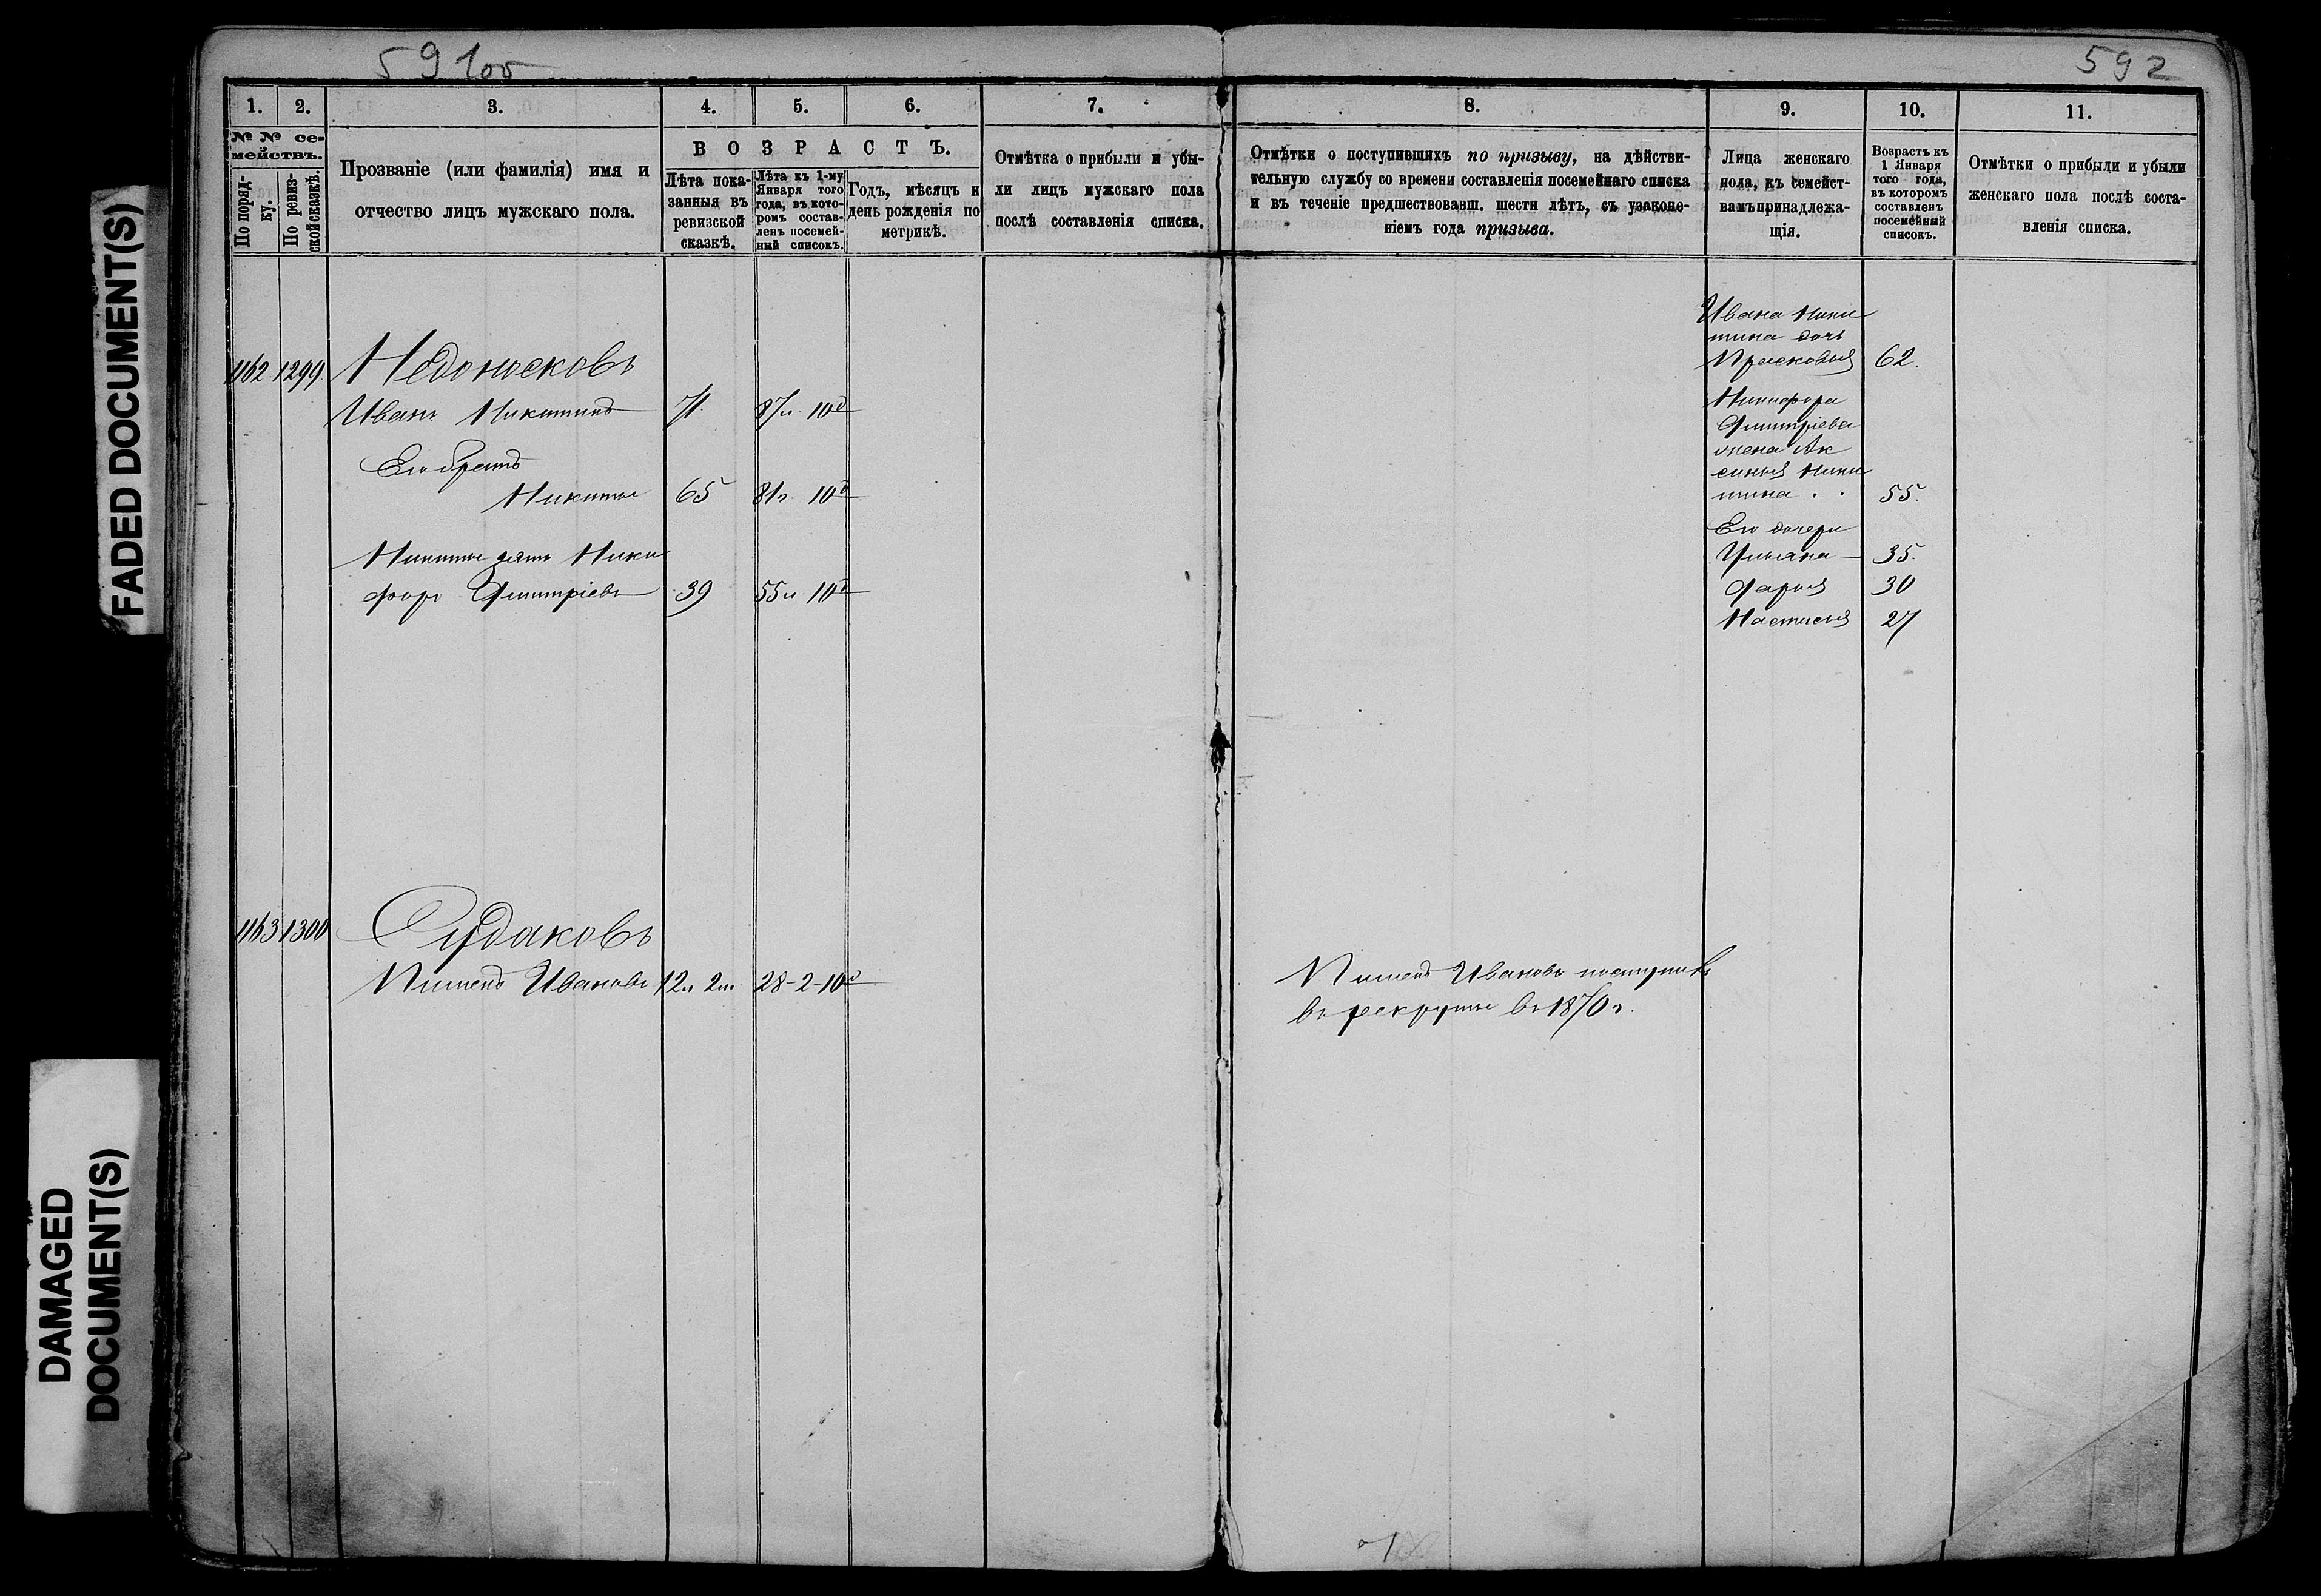 59 1об
592
1.
2.
3.
4.
5.
6.
7.
8.
9.
10.
11.
№ № се-
мействъ.
По поряд-
ку.
По ревиз-
ской сказкѣ.
Прозваніе (или фамилія) имя и
отчество лицъ мужскаго пола.
ВОЗРАСТЪ.
Лѣта пока-
занныя въ
ревизской
сказкѣ.
Лѣта къ 1-му
Января того
года, въ кото-
ромъ состав-
ленъ посемей-
ный списокъ.
Годъ, мѣсяцъ и
день рожденія по
метрикѣ.
Отмѣтка о прибыли и убы-
ли лицъ мужскаго пола
послѣ составленія списка.
Отмѣтки о поступившихъ по призыву, на дѣйстви-
тельную службу со времени составленія посемейнаго списка
и въ теченіе предшествовавш. шести лѣтъ, съ узаконе-
ніемъ года призыва.
Лица женскаго
пола, къ семейст-
вамъ принадлежа-
щія.
Возрастъ къ
1 Января
того года,
въ которомъ
составленъ
посемейный
списокъ.
Отмѣтки о прибыли и убыли
женскаго пола послѣ соста-
вленія списка.
1162 1299 Недоносковъ
Иванъ Никитинъ 71 87л 10д
Его братъ
Никита 65 81г 10д
Никиты зять Ники
форъ Дмитріевъ 39 55л 10д
Ивана Ники
тина дочь
Прасковья 62.
Никифора
Дмитріева
жена Ак
синья Ники
тина . . 55.
Его дочери
Ульяна 35.
Дарья 30
Настасья 27
1163 1300 Судаковъ
Пименъ Ивановъ 12л 2м 28-2-10д
Пименъ Ивановъ поступилъ
въ рекруты въ 1870г.
FADED DOCUMENT(S)
DAMAGED
DOCUMENT(S)